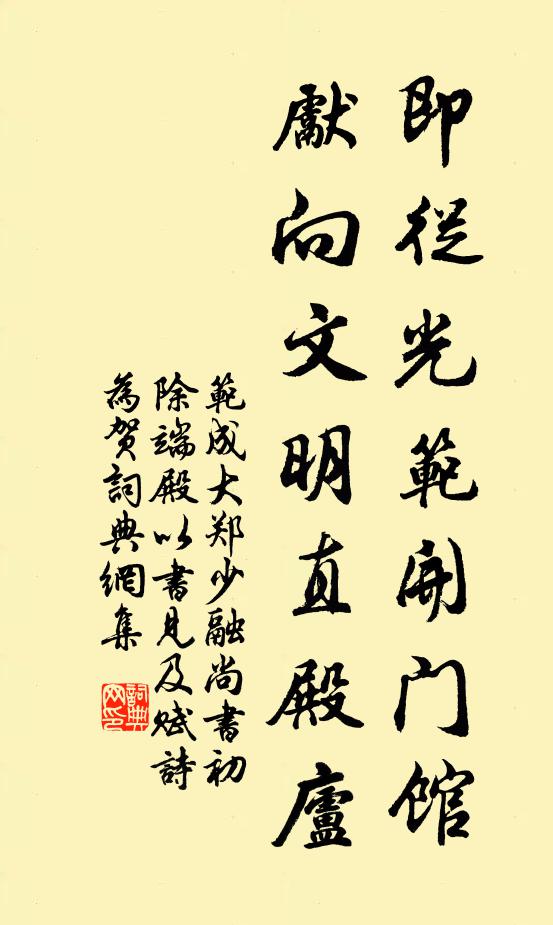 即從光範開門館
獻向文明直殿廬
範成大郑少融尚書初
除端殿以書見及赋詩
為贺詞典網集
詞典網印